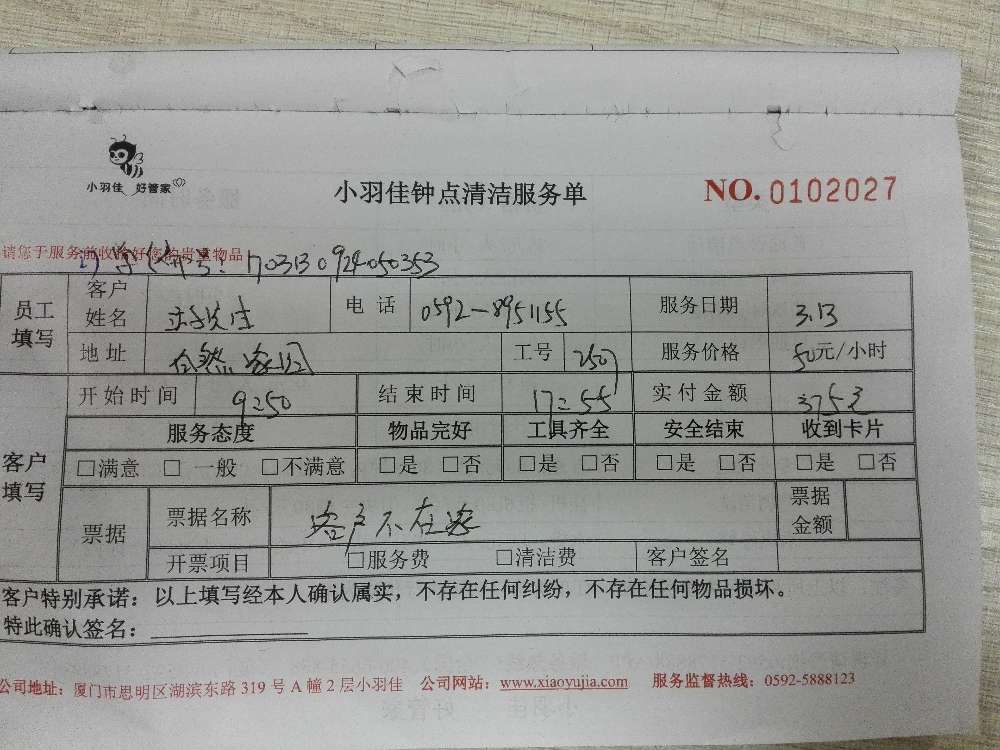 小羽佳 好管家
小羽佳钟点清洁服务单
NO. 0102027
请您于服务前收拾好您的贵重物品
号: 170313092405 0353
员工填写 客户姓名 电话 0592-8951155 服务日期 3.13
地址 自然家园 工号 2507 服务价格 50元/小时
客户填写 开始时间 9:50 结束时间 17:55 实付金额 375元
服务态度 物品完好 工具齐全 安全结束 收到卡片
□满意 □一般 □不满意 □是 □否 □是 □否 □是 □否 □是 □否
票据 票据名称 客户不在家 票据金额
开票项目 □服务费 □清洁费 客户签名
客户特别承诺:以上填写经本人确认属实,不存在任何纠纷,不存在任何物品损坏。
特此确认签名:
公司地址:厦门市思明区湖滨东路 319 号 A 幢 2 层小羽佳 公司网站:www.xiaoyujia.com 服务监督热线:0592-5888123